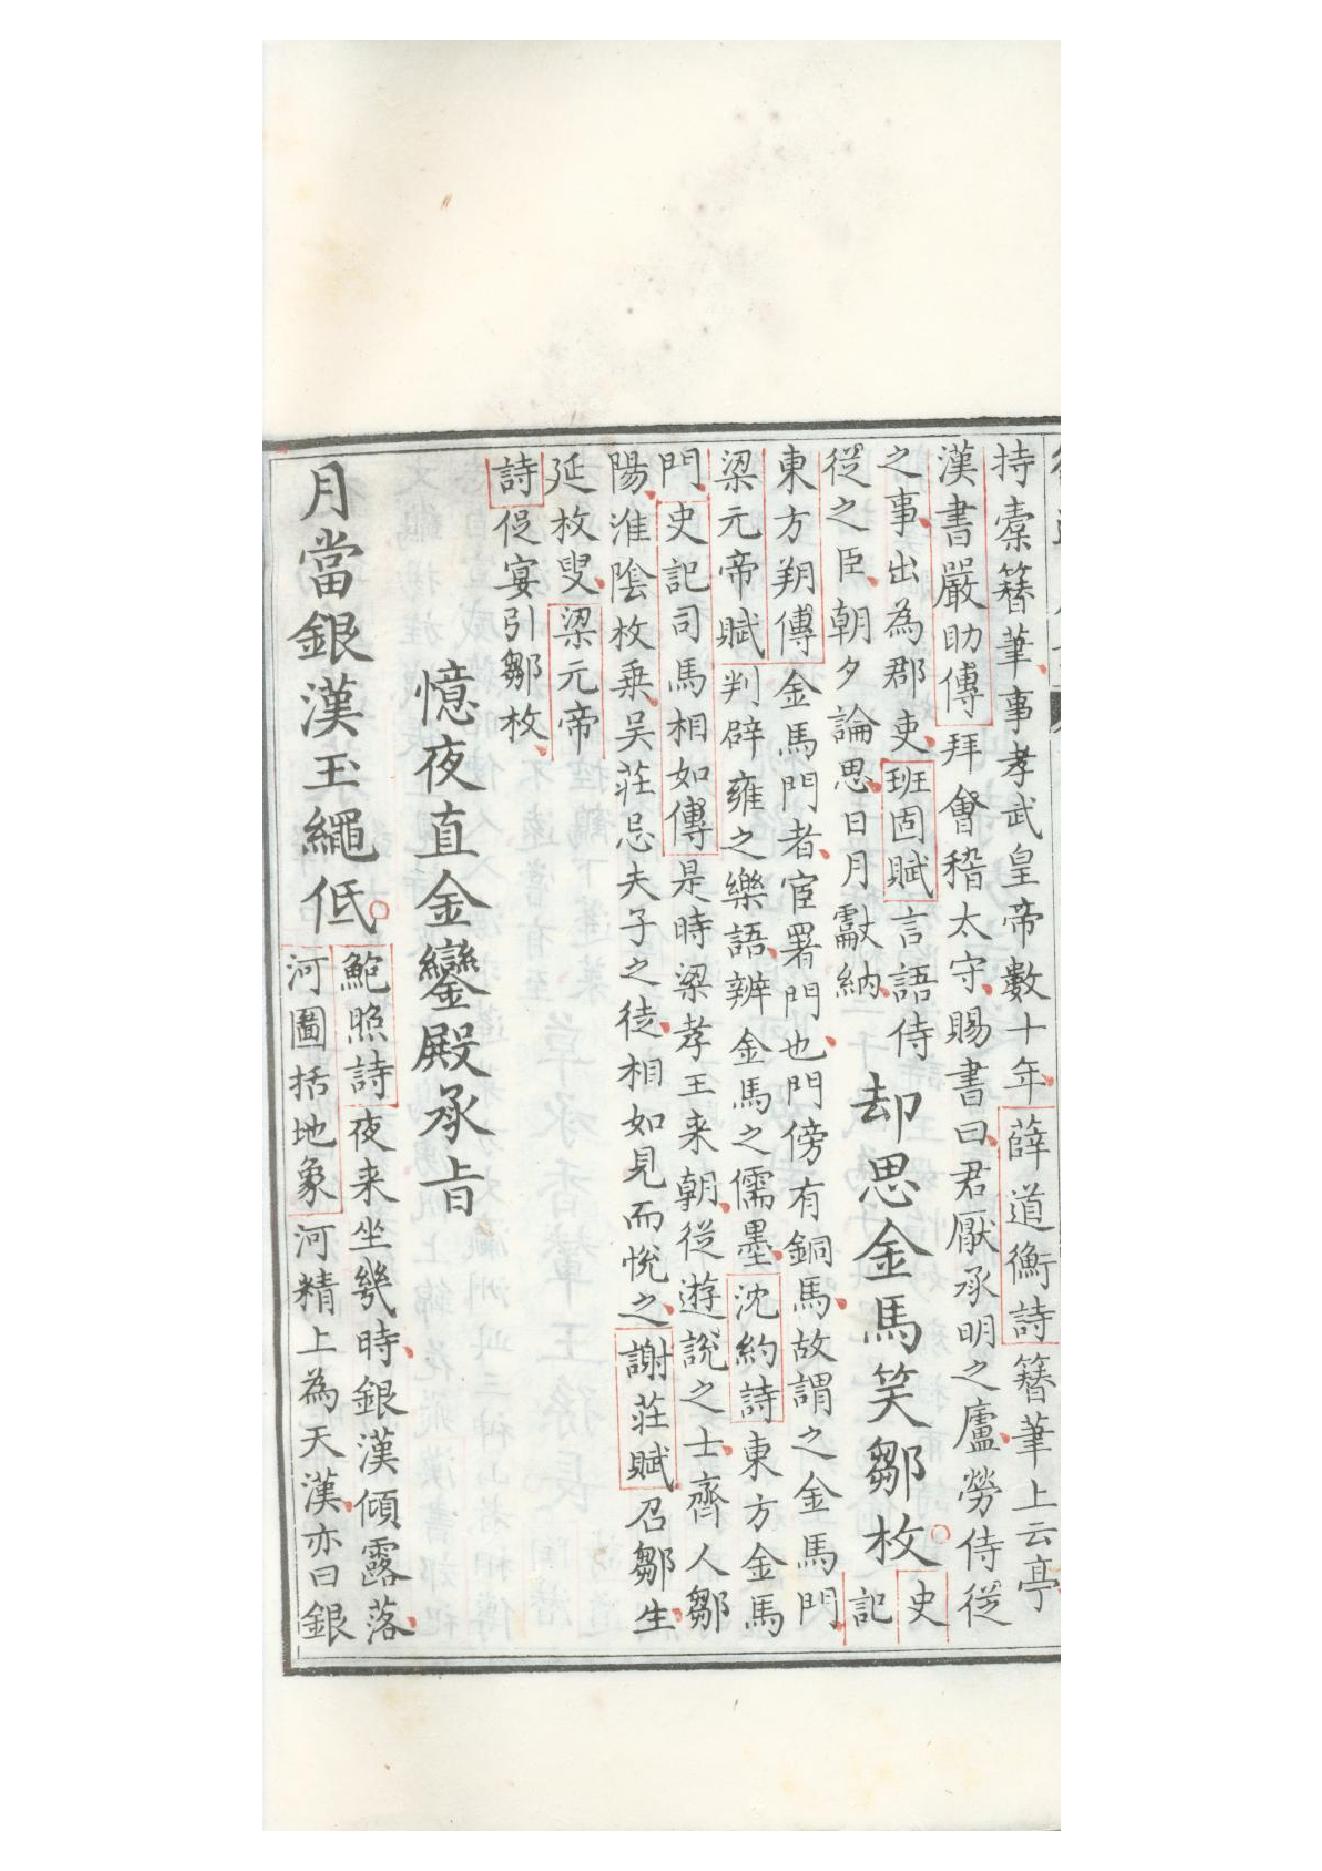 持橐簪筆事孝武皇帝數十年薛道衡詩簪筆上云亭
漢書嚴助傳拜會稽太守賜書曰君厭承明之廬勞侍從
之事出為郡吏班固賦言語侍
從之臣朝夕論思日月獻納
却思金馬笑鄒枚
史
記
東方朔傳金馬門者宦署門也門傍有銅馬故謂之金馬門
梁元帝賦判辟雍之樂語辨金馬之儒墨沈約詩東方金馬
門史記司馬相如傳是時梁孝王来朝從遊說之士齊人鄒
陽淮陰枚乗吴莊忌夫子之徒相如見而悅之謝莊賦召鄒生
延枚叟梁元帝
詩促宴引鄒枚
憶夜直金鑾殿承旨
月當銀漢玉繩低
鮑照詩夜来坐幾時銀漢傾露落
河圖括地象河精上為天漢亦曰銀